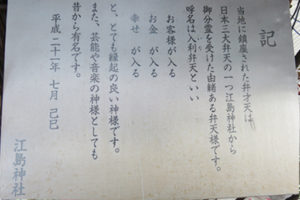 記
当地に鎮座された弁才天は
日本三大弁天の一つ江島神社から
御分霊を受けた由緒ある弁天様です。
呼名は入利弁天といい
お客様が入る
お金が入る
幸せが入る
と、とても縁起の良い神様です。
また、芸能や音楽の神様としても
昔から有名です。
平成二十一年 七月 己巳
江島神社